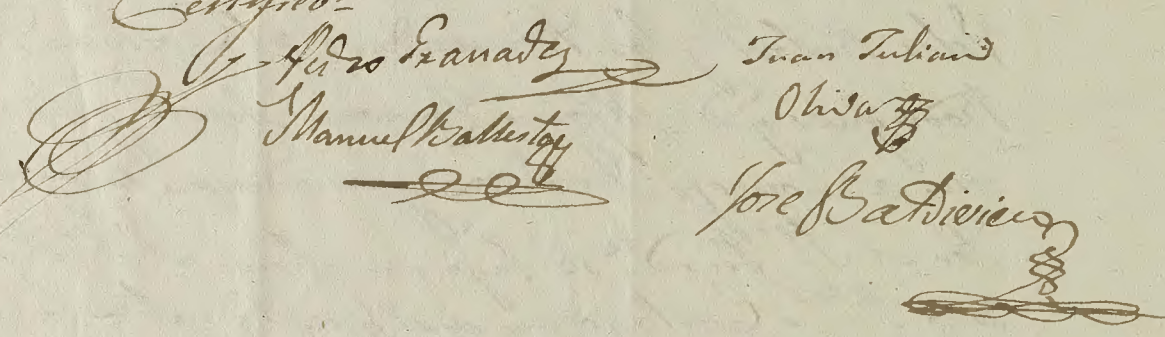 Certifico
Pedro Granados
Manuel Ballestas
Juan Julian
Oliva
Jose Baldivieso